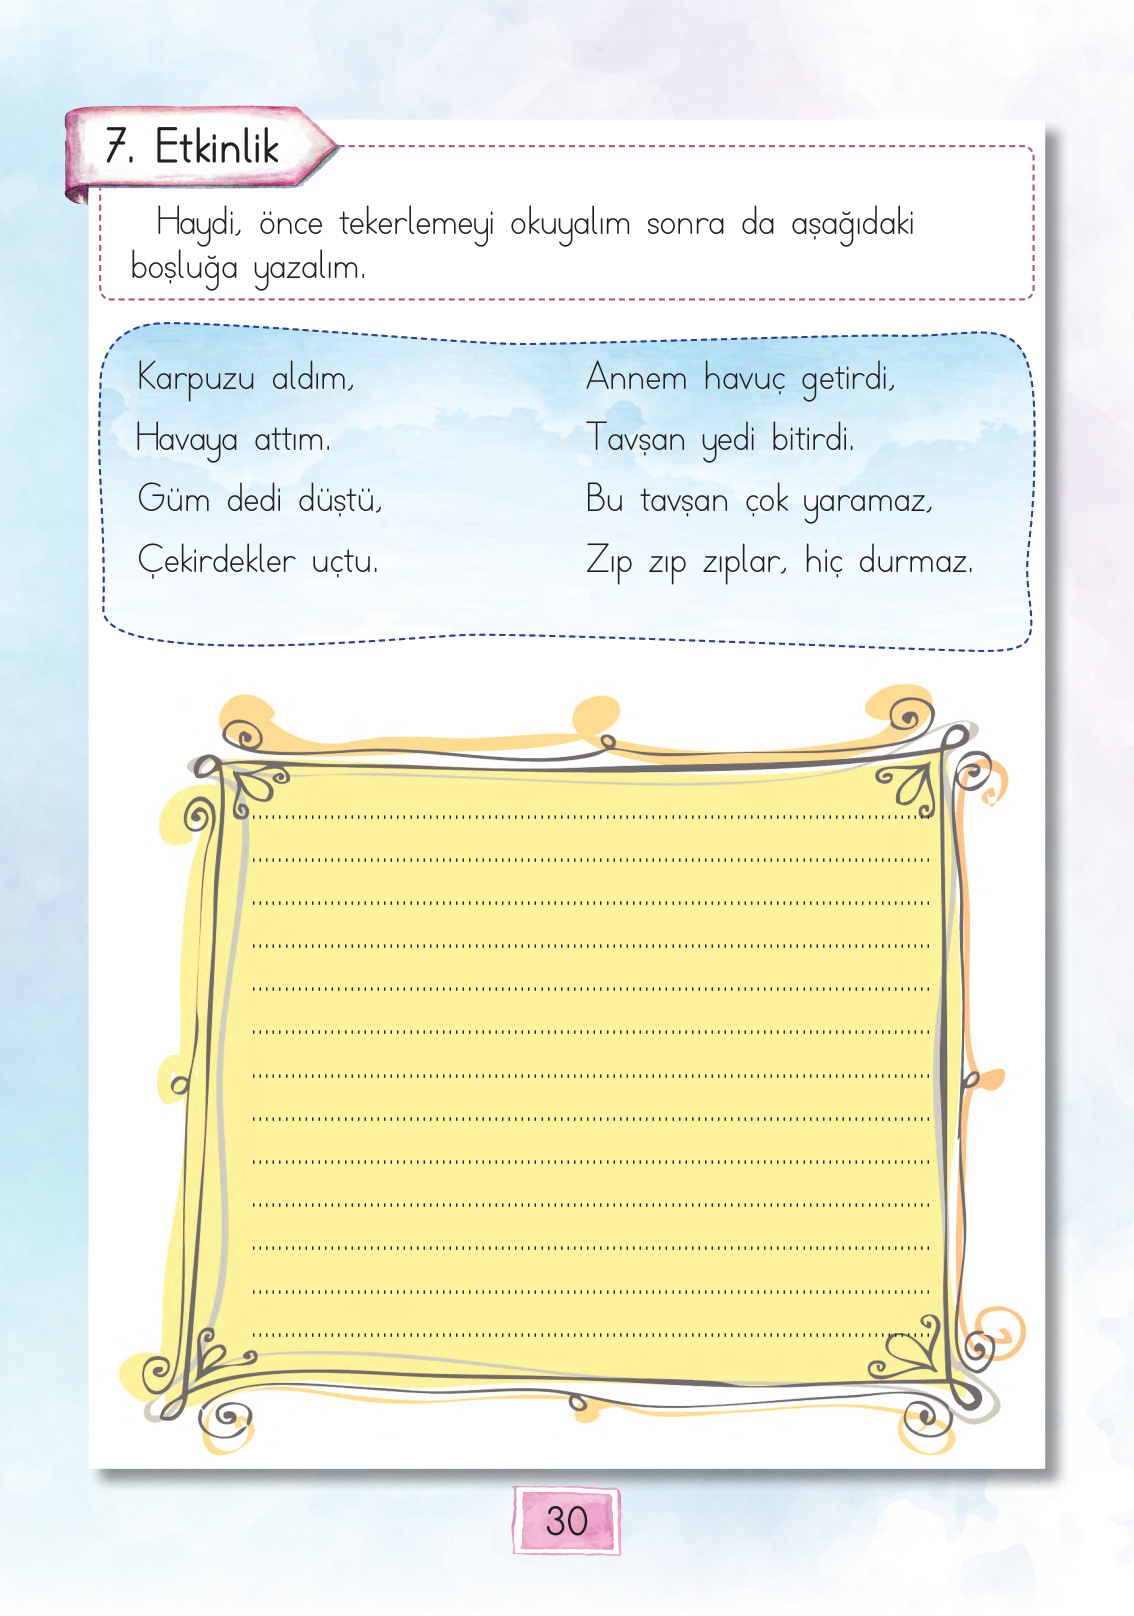 7. Etkinlik
Haydi, önce tekerlemeyi okuyalım sonra da aşağıdaki
boşluğa yazalım.
Karpuzu aldım,
Havaya attım.
Güm dedi düştü,
Çekirdekler uçtu.
Annem havuç getirdi,
Tavşan yedi bitirdi.
Bu tavşan çok yaramaz,
Zıp zıp zıplar, hiç durmaz.
30